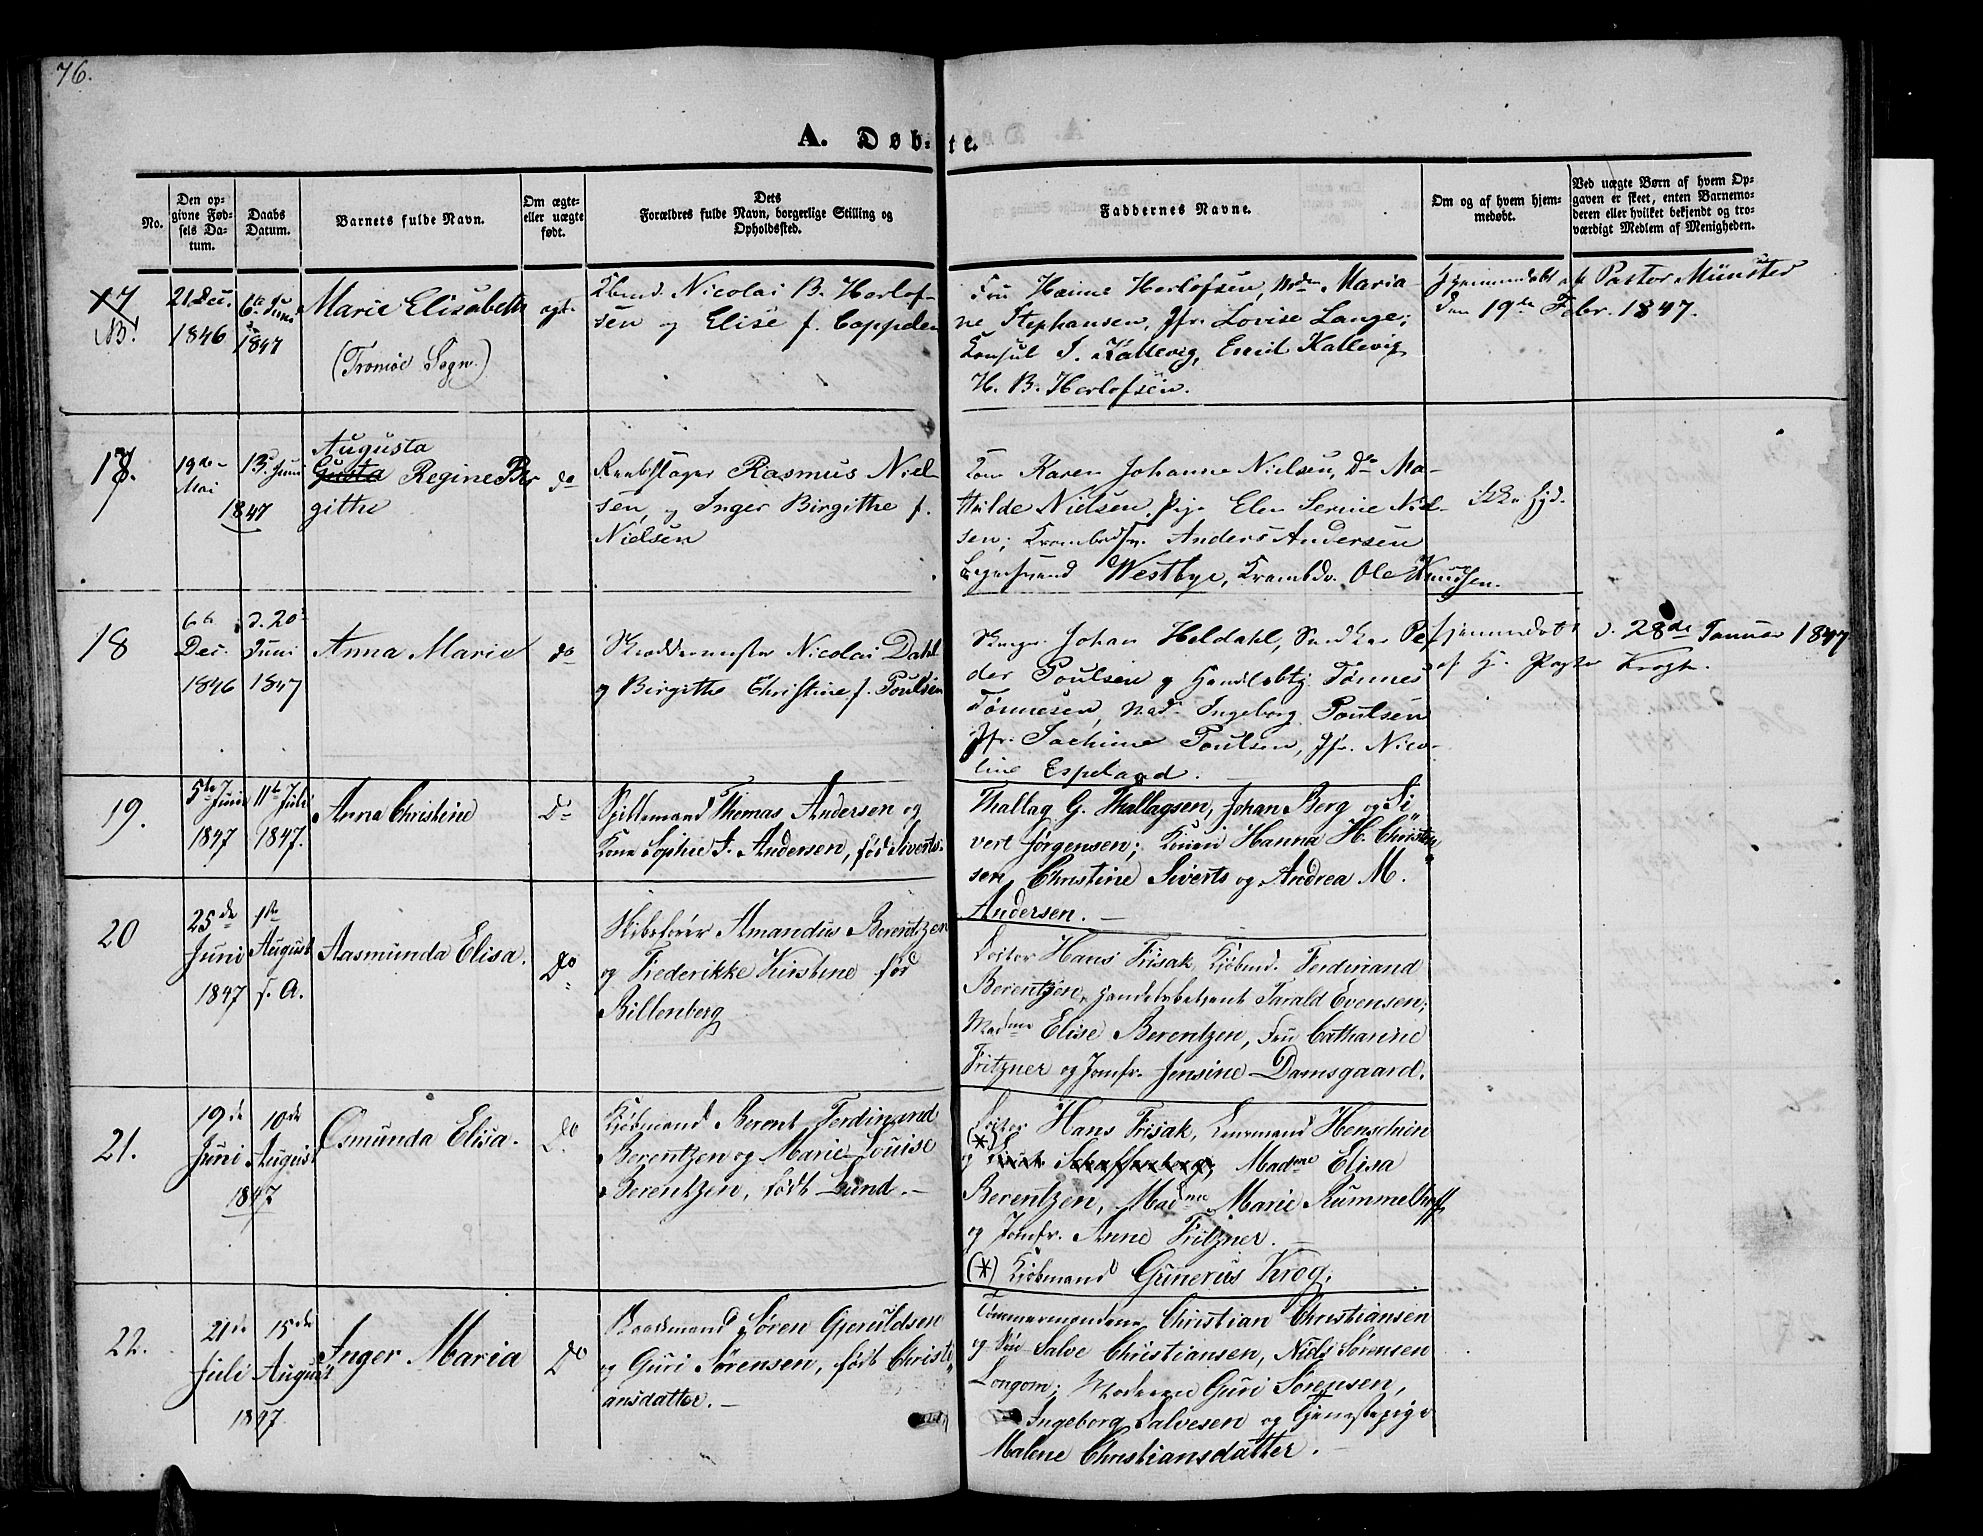 76.
A. Døb-te.
No.
Den op-
givne Fød-
sels Da-
tum.
Daabs
Datum.
Barnets fulde Navn.
Om ægte-
eller uægte
født.
Dets
Forældres fulde Navn, borgerlige Stilling og
Opholdssted.
Faddernes Navne.
Om og af hvem hjem-
medøbt.
Ved uægte Børn af hvem Op-
gaven er skeet, enten Barnemo-
deren eller hvilket bekjendt og tro-
værdigt Medlem af Menigheden.
17
21 Dec.
1846
6te Juni
1847
Marie Elisabeth
(Tromøe Sogn.)
ægt.
Kbmd. Nicolai B. Herlof-
sen og Elise f. Cappelen
Fru Hanne Herlofsen, Mdm Maria-
ne Stephansen, Jfr. Lovise Lange;
Konsul J. Kallevig, Emid Kallevig
H. B. Herlofsen.
Hjemmedøbt af Pastor Münster
den 19de Febr. 1847.
17.
19de
Mai
13 Juni
1847
Augusta
Gusta Regine Bir
githe
do
Reebslager Rasmus Niel-
sen og Inger Birgithe f.
Nielsen
Kone Karen Johanne Nielsen, Do Ma-
thilde Nielsen, Pige Elen Serine Niel-
sen; Anders Andersen
Westbye, Ole Knudsen.
Ikke hjd.
18
6te
Dec.
1846
d. 20
Juni
1847
Anna Marie
do
Skreddermester Nicolai Dahl
og Birgithe Christine f. Poulsen
Johan Heldahl, Snedker Pe-
der Poulsen og Handlsbtj. Tønnes
Tønnesen, Mad. Ingeborg Poulsen
Jfr. Jachime Poulsen, Jfr. Nico-
line Espeland.
Hjemmedøbt d. 28de Januar 1847
af H. Pastor Krogh.
19.
5te Juni
1847
11te Juli
1847.
Anna Christine
Do
Spillemand Thomas Andersen og
Kone Sophie J. Andersen, fød Siverts-
Thallag G. Thallagsen, Johan Berg og Si
vert Jørgensen; Konen Hanna H. Christen
sen, Christine Siverts og Andrea M.
Andersen. —
20
25de
Juni
1847
1ste
August
s. A.
Aasmunda Elisa.
Do
Skibsfører Amandus Berentzen
og Frederikke Kirstine fød
Billenberg
Doctor Hans Frisak, Kjøbmd. Ferdinand
Berentzen, Handelsbetjent Tarald Evensen;
Madme Elise Berentzen, Fru Catharine
Fritzner og Jomfr. Jensine Damsgaard.
21.
19de
Juni
10de
August
1847
Osmunda Elisa.
Do
Kjøbmand Berent Ferdinand
Berentzen og Marie Louise
Berentzen, født Lund. —
Doctor Hans Frisak, Henschien
(*)
og Scharffenberg; Madme Elisa
Berentzen, Madme Marie Rummelhoff
og Jomfr. Anne Fritzner.
(*) Kjøbmand Gunerius Krog.
22.
21de
Juli
15de
August
1847
Inger Maria
Do
Baadsmand Søren Gjeruldsen
og Guri Sørensen, født Christi
ansdatter. —
Tømmermændene Christian Christiansen
og Søn Salve Christiansen, Niels Sørensen
Longom; Madamen Guri Sørensen,
Ingeborg Salvesen og Tjenestepige
Malene Christiansdatter. —